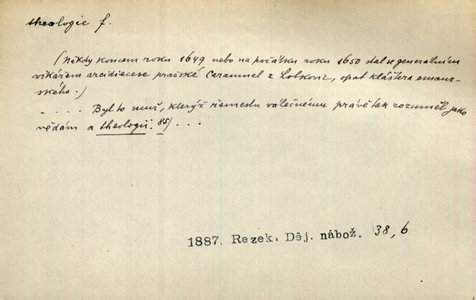 theologie f.
(Někdy koncem roku 1649 nebo na počátku roku 1650 stal se generalním
vikářem arcidiecese pražské Caramuel z Lobkovic, opat kláštera emauz-
ského.)
. . . . Byl to muž, kterýž řemeslu válečnému právě tak rozuměl, jako
vědám a theologii. 85) . . .
1887. Rezek. Děj. nábož. 38, 6